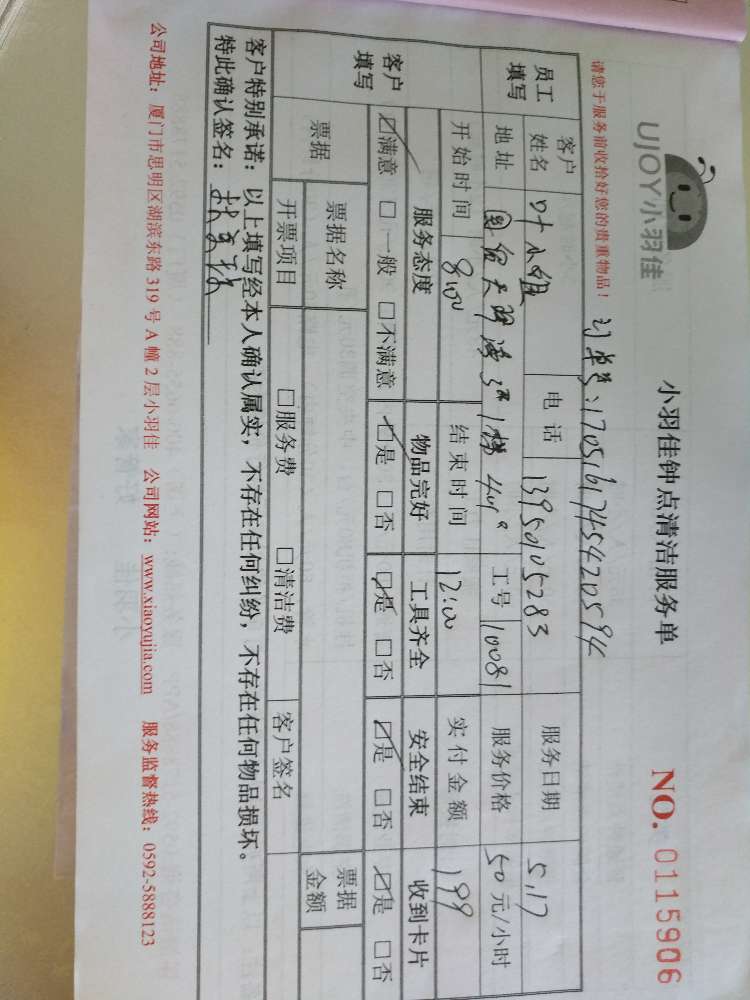 UJOY小羽佳
小羽佳钟点清洁服务单
NO. 0115906
请您于服务前收拾好您的贵重物品！
订单号：1705161745420594
员工填写 客户姓名 叶小姐 电话 13950105283 服务日期 5.17
地址 1梯 工号 10081 服务价格 50元/小时
开始时间 8:00 结束时间 12:00 实付金额 199
客户填写 服务态度 物品完好 工具齐全 安全结束 收到卡片
☑满意 □一般 □不满意 ☑是 □否 ☑是 □否 ☑是 □否 ☑是 □否
票据 票据名称 票据金额
开票项目 □服务费 □清洁费 客户签名
客户特别承诺：以上填写经本人确认属实，不存在任何纠纷，不存在任何物品损坏。
特此确认签名：
公司地址：厦门市思明区湖滨东路 319 号 A 幢 2 层小羽佳 公司网站：www.xiaoyujia.com 服务监督热线：0592-5888123